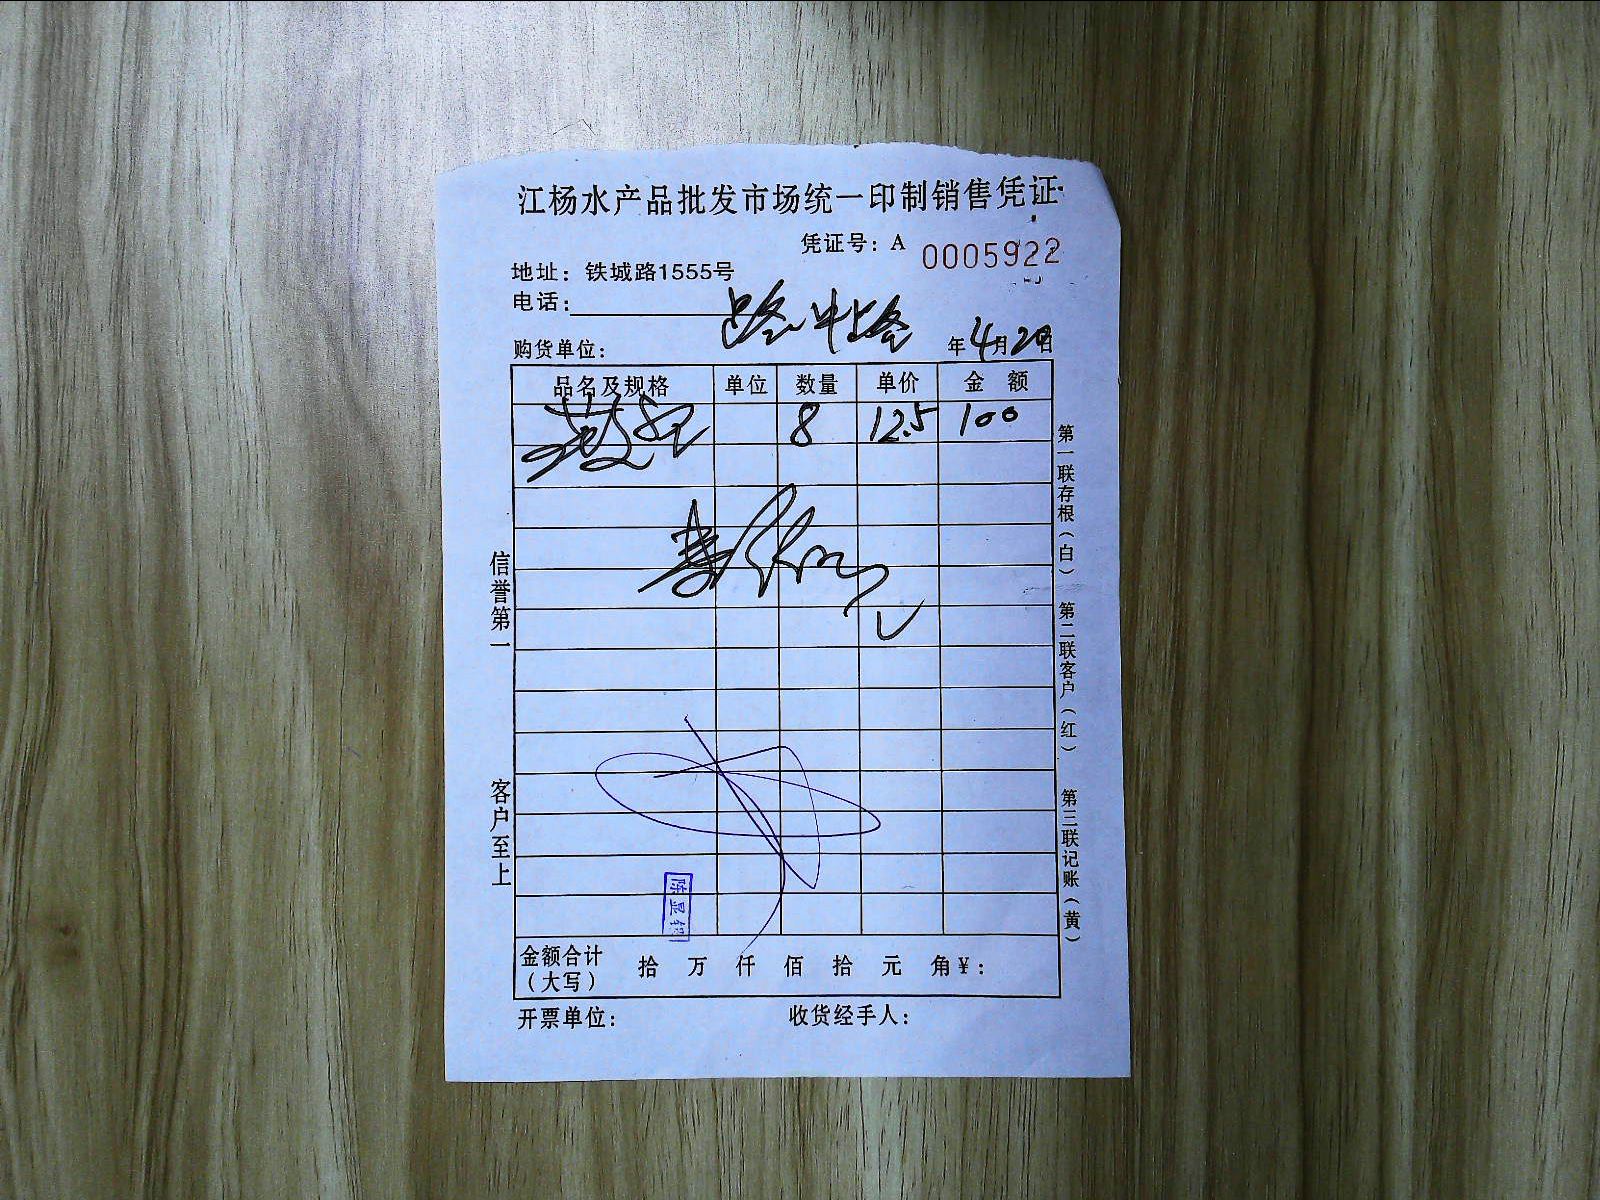 江杨水产品批发市场统一印制销售凭证
凭证号：A 0005922
地址：铁城路1555号
电话：
购货单位： 年4月20日
品名及规格 单位 数量 单价 金额
8 12.5 100
信誉第一
客户至上
第一联存根（白）
第二联客户（红）
第三联记账（黄）
金额合计
（大写）
拾 万 仟 佰 拾 元 角￥：
开票单位： 收货经手人：